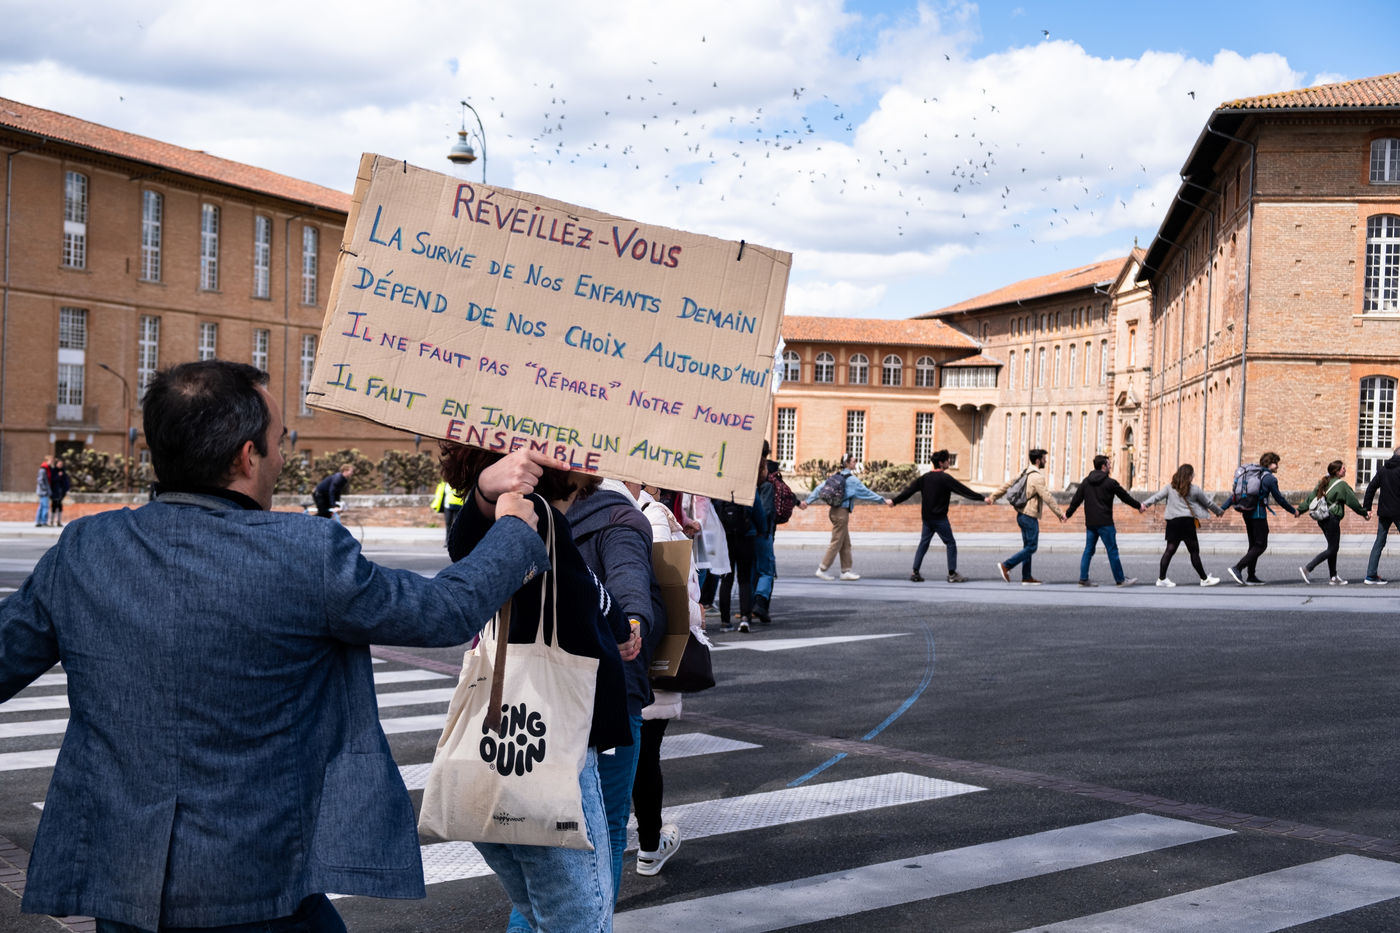 RÉVEILLEZ-VOUS
LA SURVIE DE NOS ENFANTS DEMAIN
DÉPEND DE NOS CHOIX AUJOURD'HUI
IL NE FAUT PAS "RÉPARER" NOTRE MONDE
IL FAUT EN INVENTER UN AUTRE !
ENSEMBLE
PiNG
OUiN